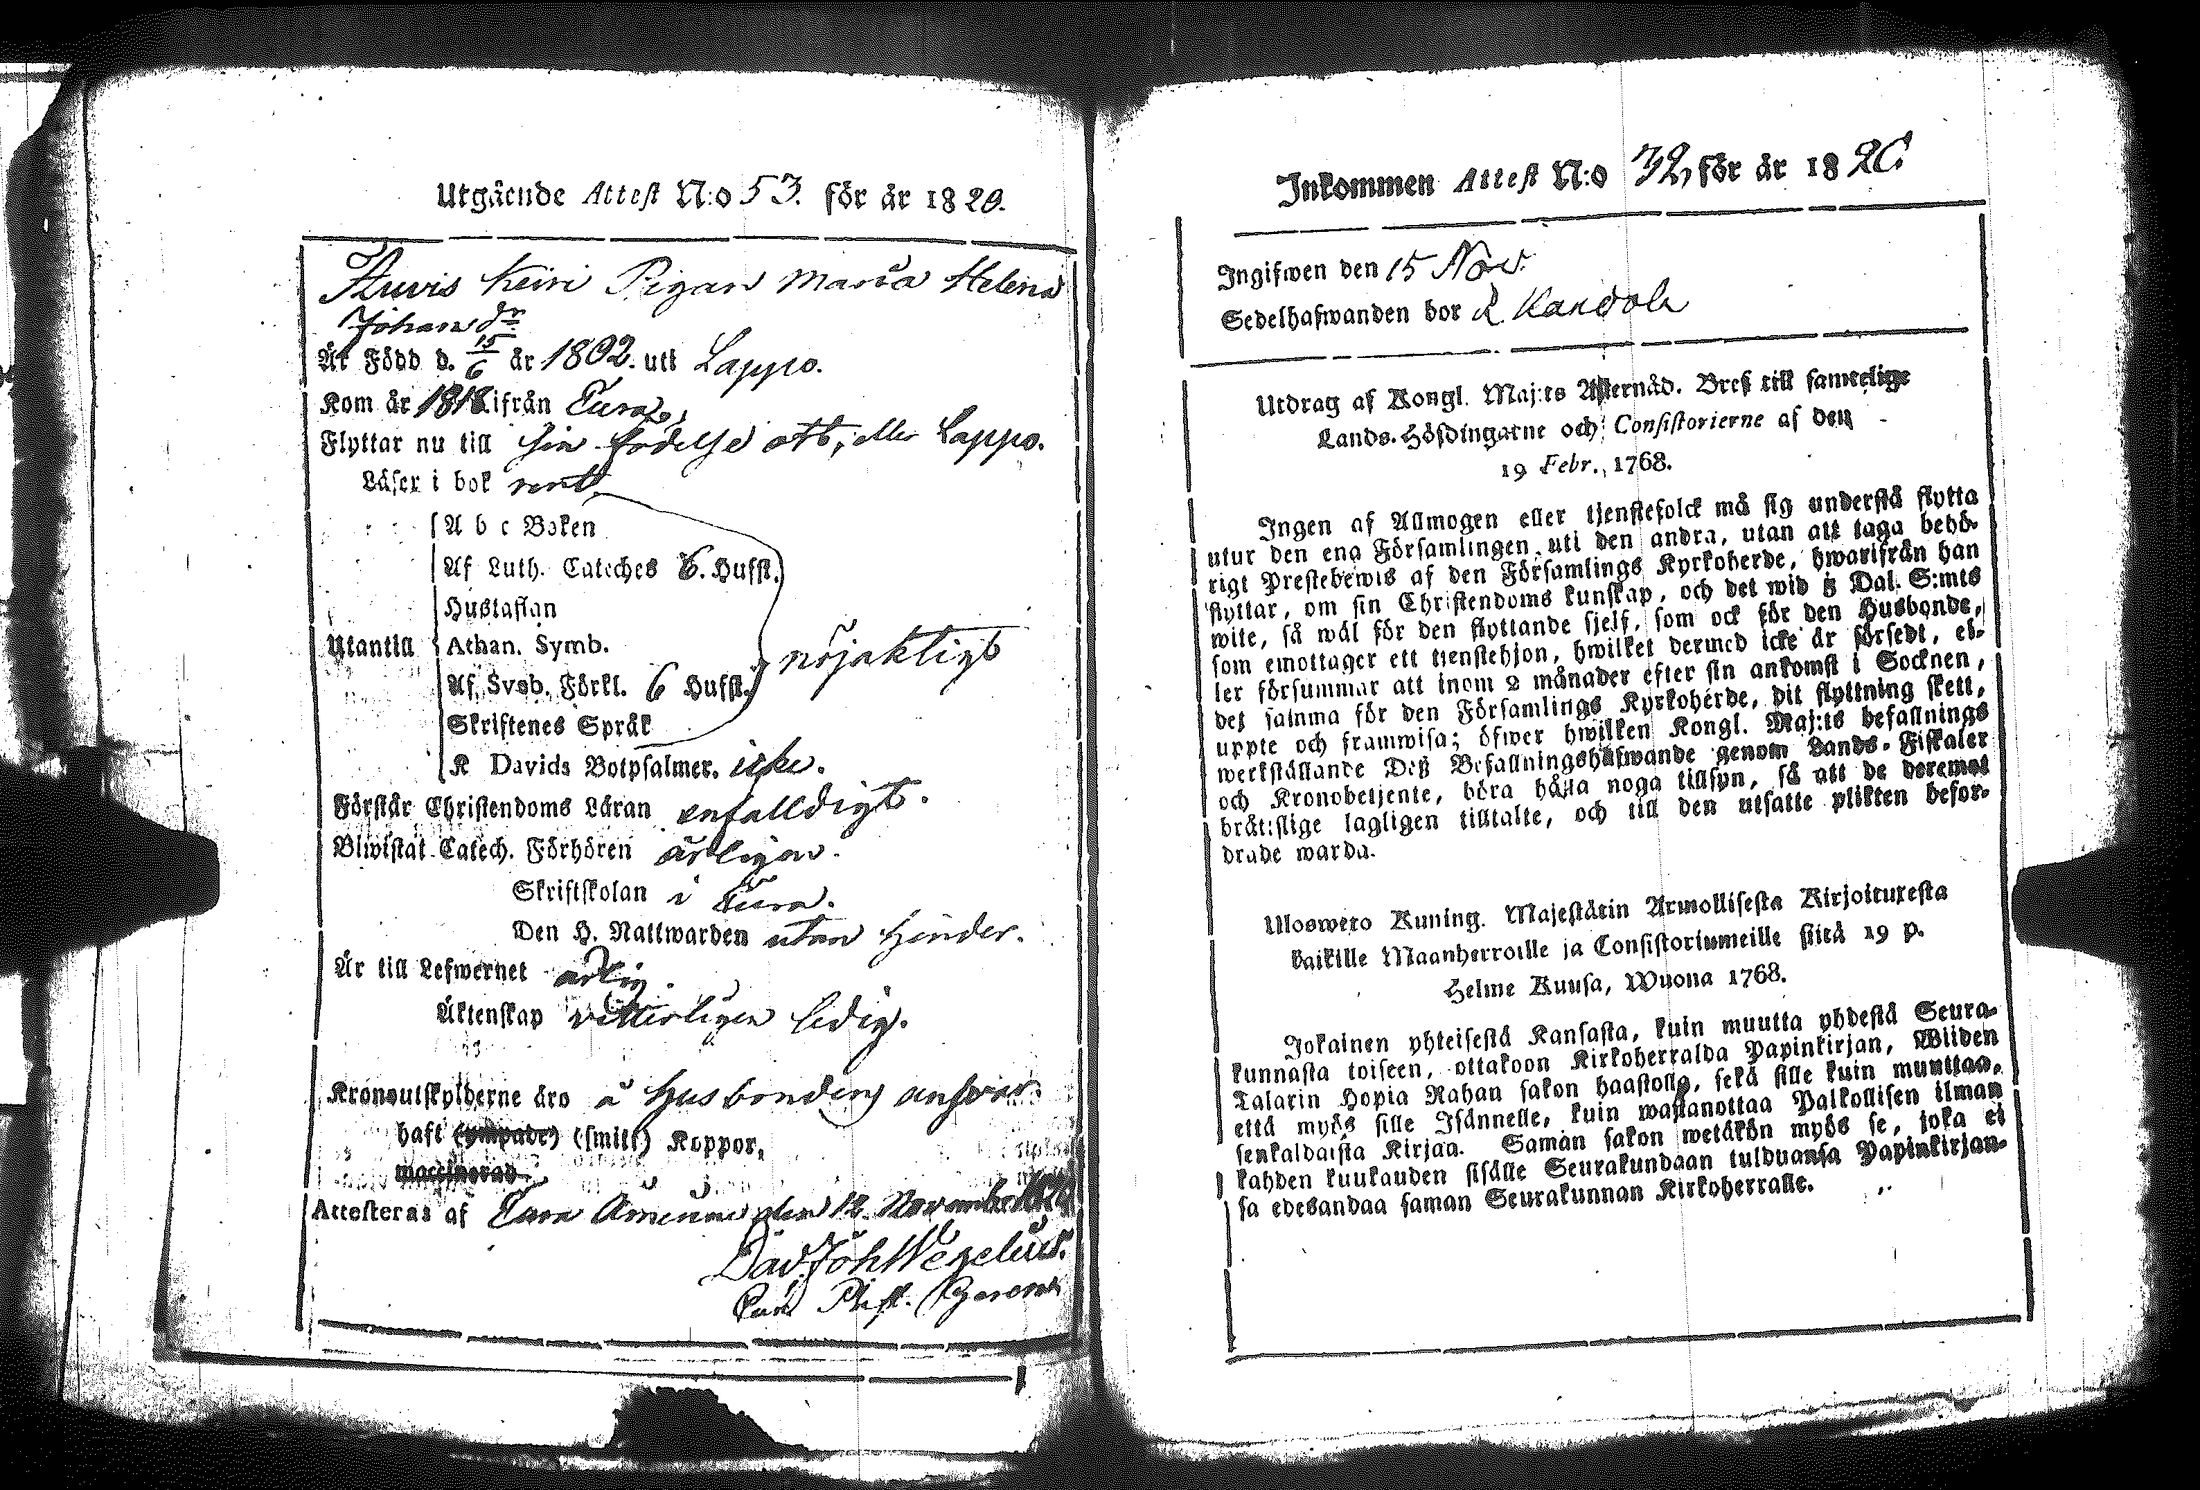 Utgående Attest N:o 53. för år 1820.
Keiri Pigan Maria Helena
Johansdr
Är Född d. 15/6 år 1802. uti Lappo.
Kom år 1818 ifrån Eura,
Flyttar nu till sin födelse ort, eller Lappo.
Läser i bok rent
A b c Boken
Af Luth. Cateches 6. Hufst.
Hustaflan
Utantill Athan. Symb.
nöjaktigt
Af Sveb. Förkl. 6 Hufst.
Skriftenes Språk
K Davids Botpsalmer. icke.
Förstår Christendoms Läran enfalldigt.
Biwistat Catech. Förhören årligen.
Skriftskolan i Eura.
Den H. Nattwarden utan hinder.
Är till Lefwernet ärlig.
Äktenskap witterligen ledig.
Kronoutskylderne äro å Husbondens answar.
haft (ympade) (smitt) Koppor,
maccinerad
Attesteras af Eura den 12 November
Dav. Joh. Wegelius.
Inkommen Attest N:o 32, för år 1820
Ingifwen den 15 Nov.
Sedelhafwanden bor
Utdrag af Kongl. Maj:ts Allernåd. Bref till samtelige
Lands-Höfdingarne och Consistorierne af den
19 Febr. 1768.
Ingen af Allmogen eller tjenstefolck må sig understå flytta
utur den ena Församlingen uti den andra, utan att taga behö-
rigt Prestebewis af den Församlings Kyrkoherde, hwarifrån han
flyttar, om sin Christendoms kunskap, och det wid 3 Dal. S:mts
wite, så wäl för den flyttande sjelf, som ock för den Husbonde,
som emottager ett tjenstehjon, hwilket dermed icke är försedt, el-
ler försummar att inom 2 månader efter sin ankomst i Socknen,
det samma för den Församlings Kyrkoherde, dit flyttning skett,
uppte och framwisa; öfwer hwilken Kongl. Maj:ts befallnings
werkställande Deß Befallningshafwande genom Lands-Fiskaler
och Kronobetjente, böra hålla noga tillsyn, så att de deremot
bråtslige lagligen tilltalte, och till den utsatte plikten befor-
drade warda.
Uloswero Kuning. Majestätin Armollisesta Kirjoituxesta
kaikille Maanherroille ja Consistoriumeille siitä 19 p.
Helme Kuusa, Wuona 1768.
Jokainen yhteisestä Kansasta, kuin muutta yhdestä Seura-
kunnasta toiseen, ottakoon Kirkoherralda Papinkirjan, Wiiden
Talarin Hopia Rahan sakon haastolla, sekä sille kuin muuttaa,
että myös sille Isännelle, kuin wastanottaa Palkollisen ilman
senkaldaista Kirjaa. Saman sakon wetäkön myös se, joka ei
kahden kuukauden sisälle Seurakundaan tulduansa Papinkirjan-
sa edesandaa saman Seurakunnan Kirkoherralle.